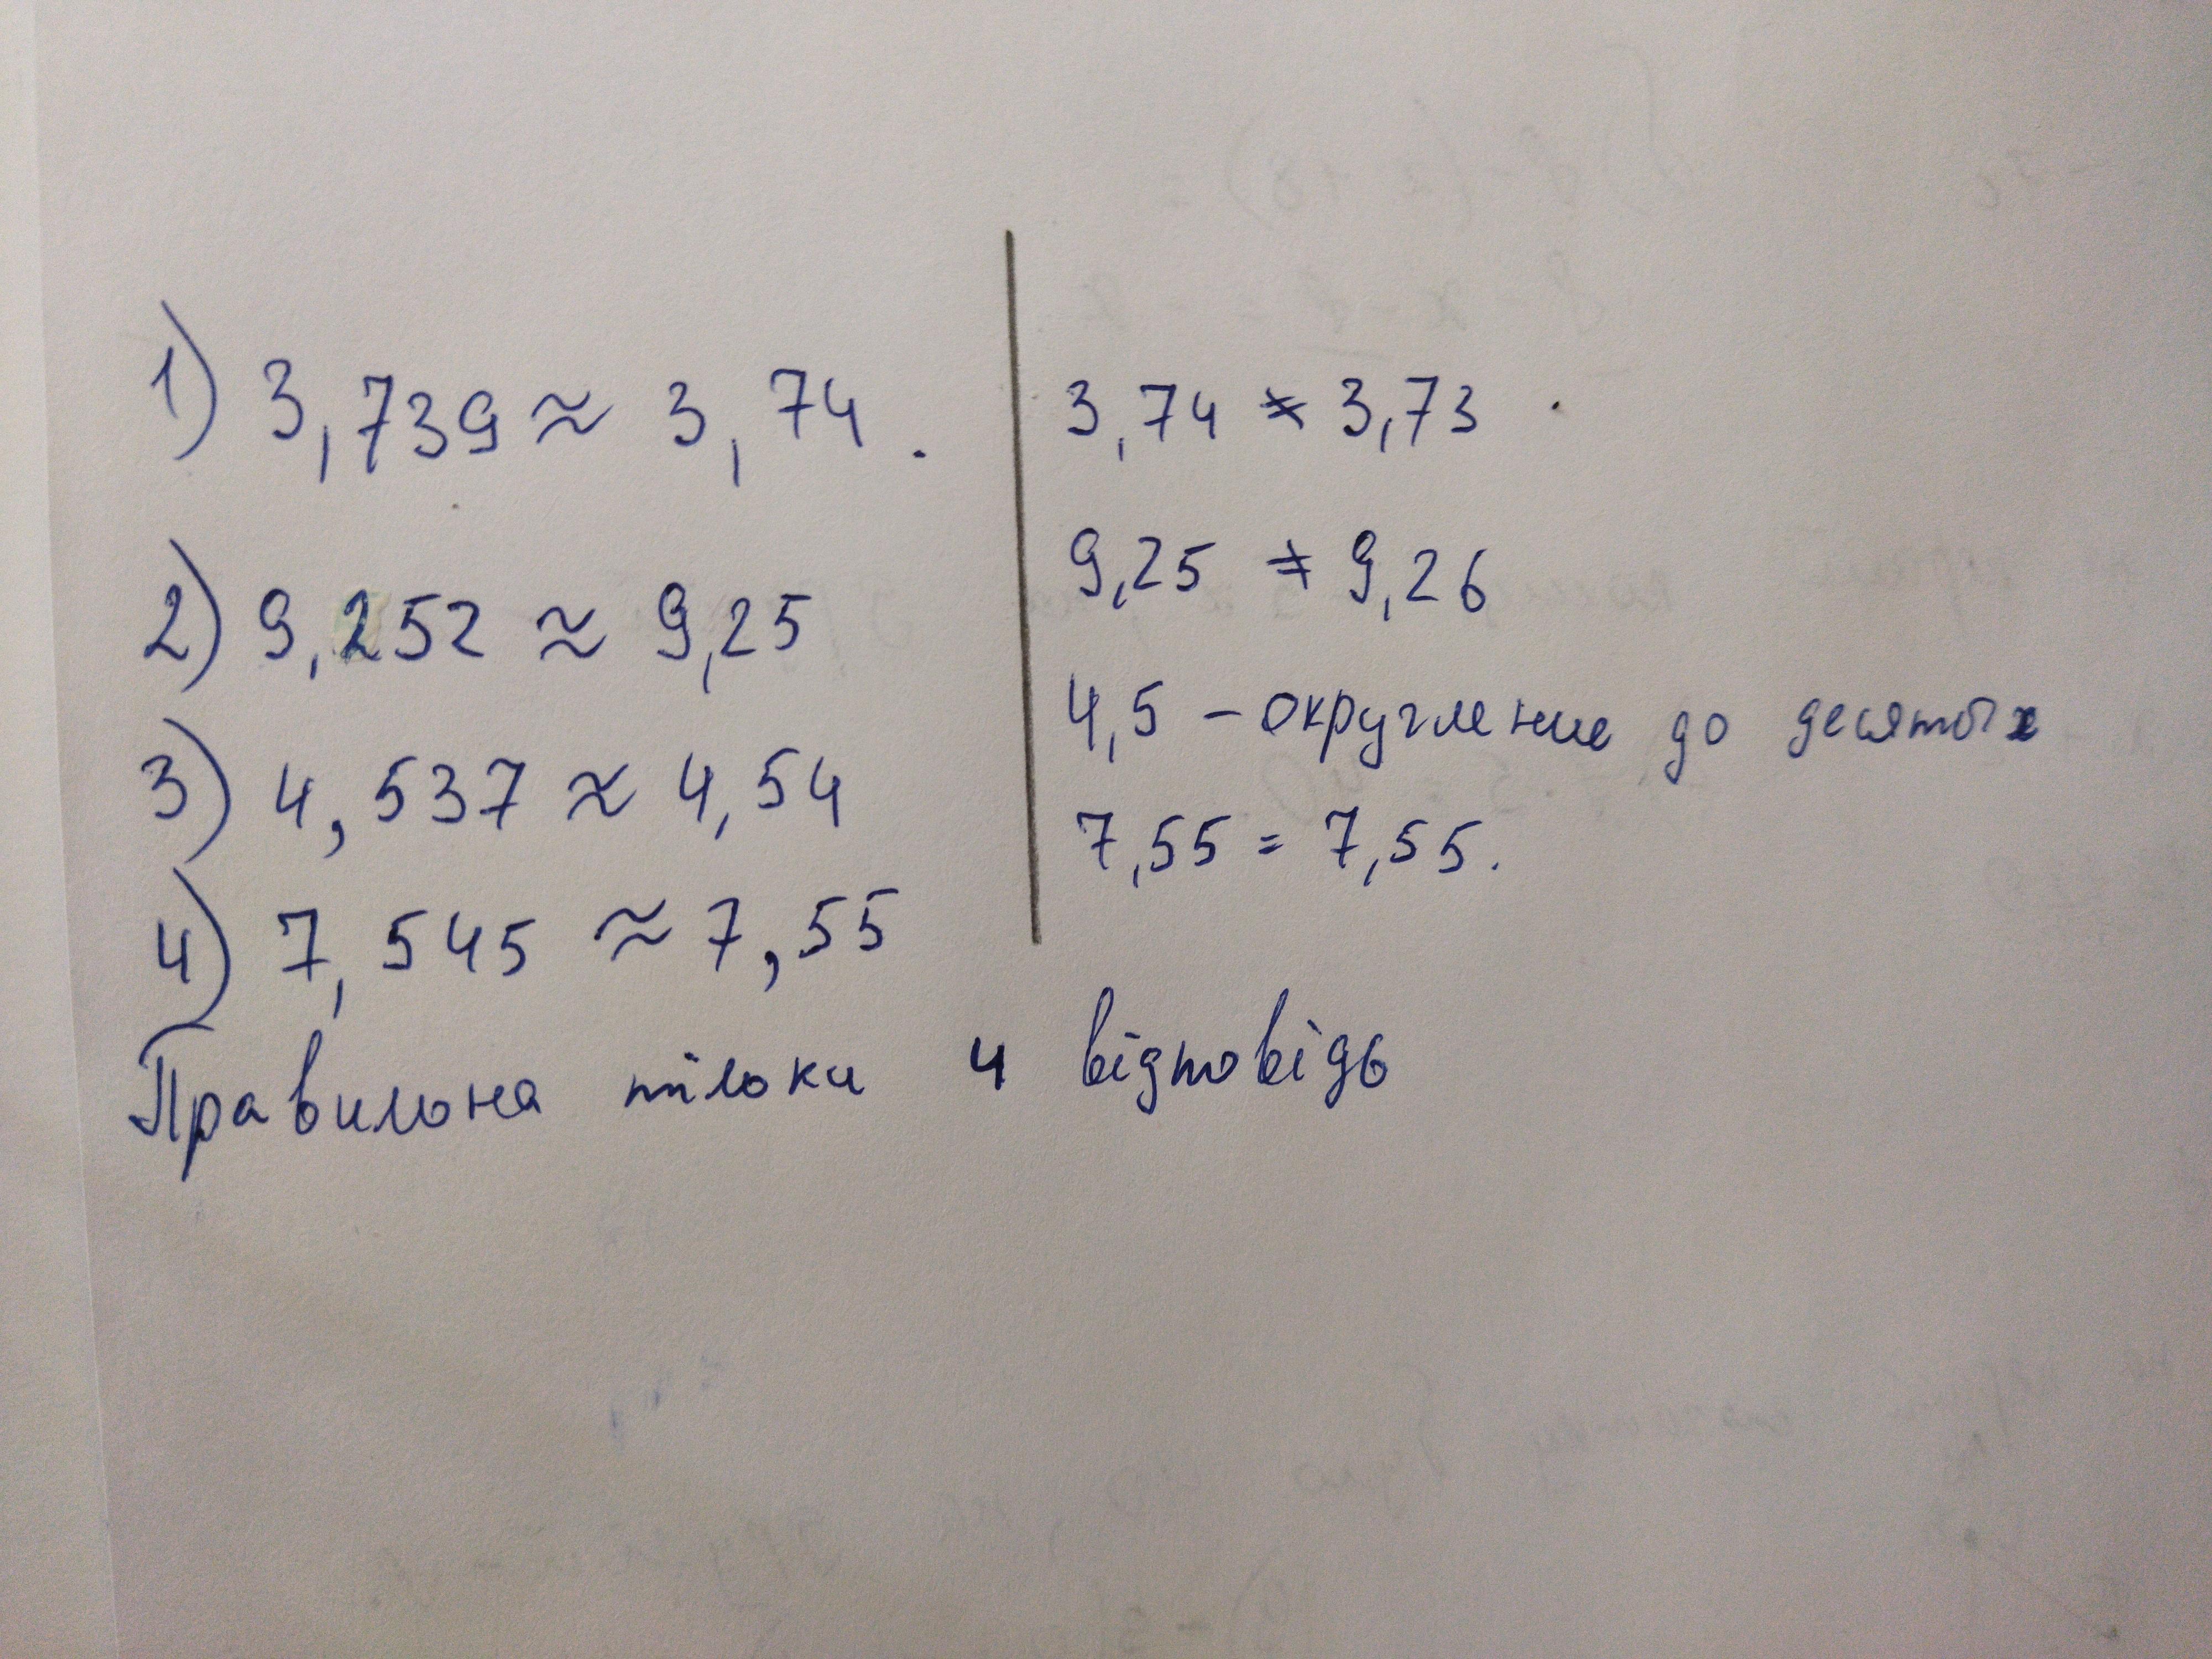 1) 3,739 ≈ 3,74.
2) 9,252 ≈ 9,25
3) 4,537 ≈ 4,54
4) 7,545 ≈ 7,55
3,74 ≠ 3,73.
9,25 ≠ 9,26
4,5 – округление до десятых
7,55 = 7,55.
Правильна тільки 4 відповідь